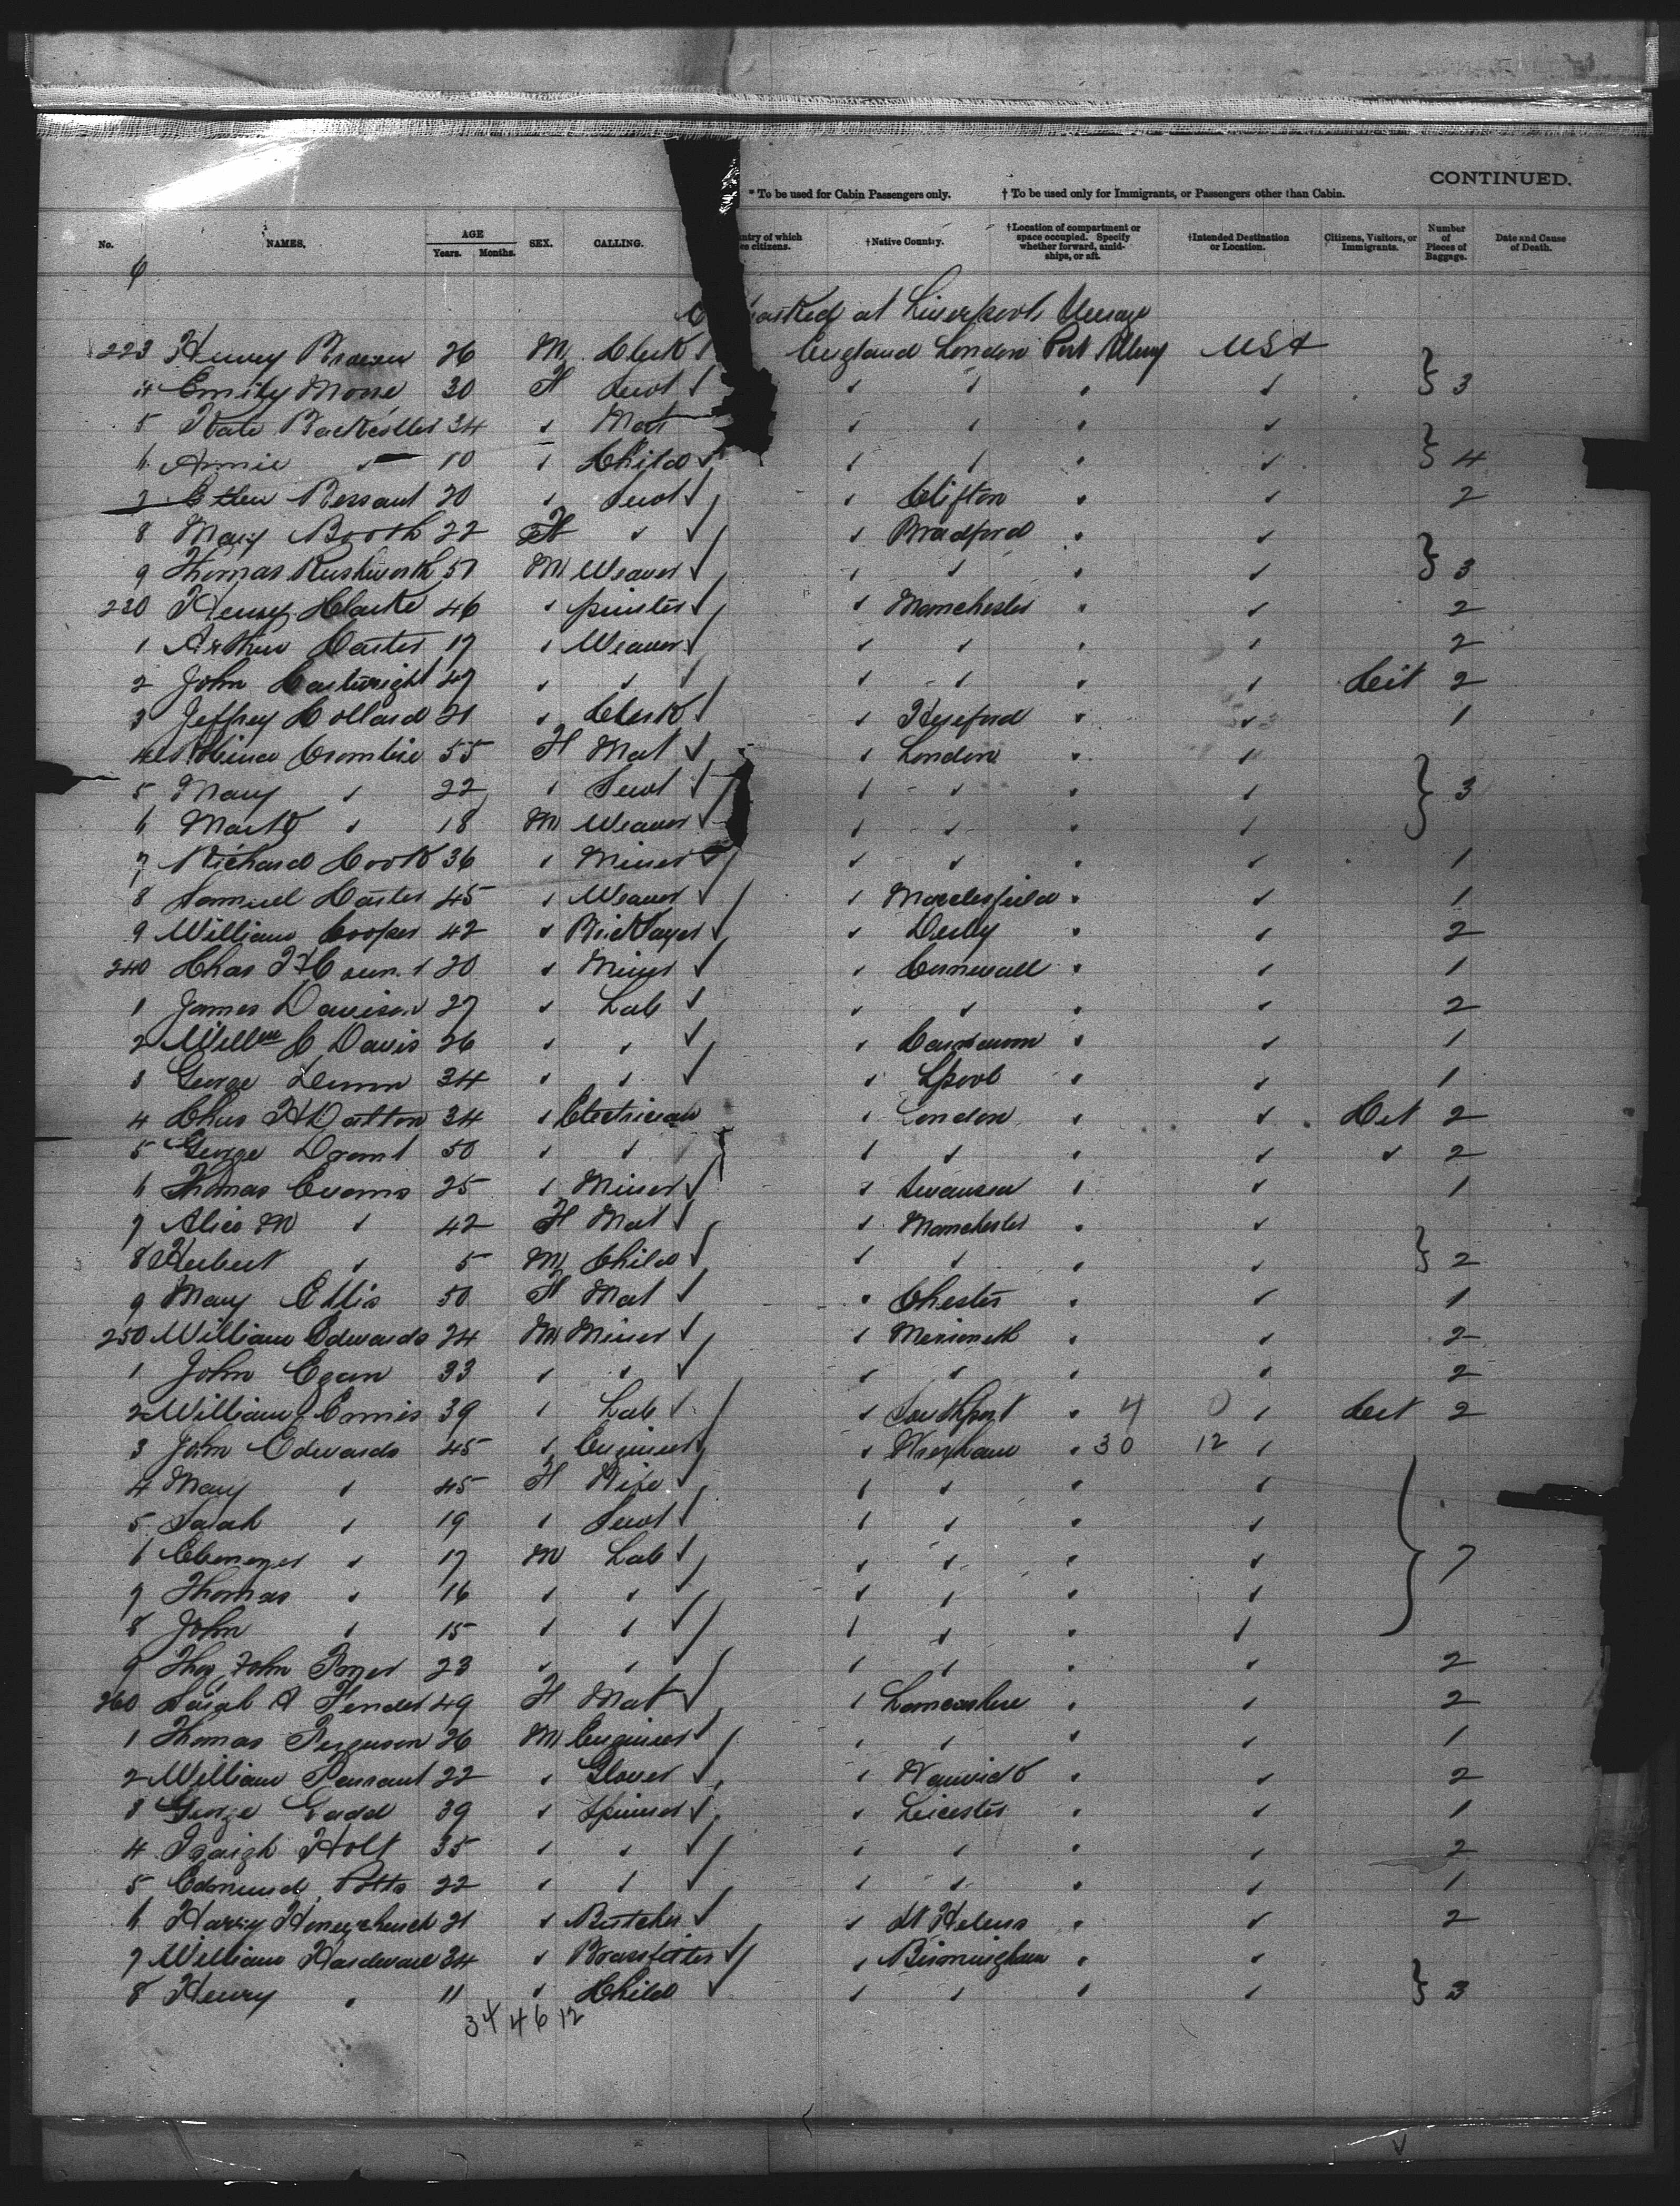 CONTINUED.
* To be used for Cabin Passengers only. † To be used only for Immigrants, or Passengers other than Cabin.
No. NAMES. AGE Years. Months. SEX. CALLING. ntry of which e citizens. †Native Country. †Location of compartment or space occupied. Specify whether forward, amidships, or aft. †Intended Destination or Location. Citizens, Visitors, or Immigrants. Number of Pieces of Baggage. Date and Cause of Death.
6
arked at Liverpool
223 Henry 26 M Clerk England London USA
4 Emily 30 F Servt 3
5 Kate 34 Mat
6 Annie 10 Child 4
7 Bessant 20 Servt Clifton 2
8 Mary Booth 22 F Bradford
9 Thomas Rushworth 51 M Weaver 3
230 Henry Clarke 46 printer Manchester 2
1 Arthur Carter 17 Weaver 2
2 John Cartwright 47 Cit 2
3 Jeffrey Collard 21 Clerk Hereford 1
4 Crombie 55 F Mat London
5 Mary 22 Servt 3
6 Mark 18 M Weaver
7 Richard Cook 36 Miner 1
8 Samuel Carter 45 Weaver Macclesfield 1
9 William Cooper 42 Bricklayer Derby 2
240 Chas H 20 Miner Cornwall 1
1 James Davison 27 Lab 2
2 Willm C Davis 26 Carnarvon 1
3 George Dunn 34 Lpool 1
4 Chas H Datton 34 Electrician London Cit 2
5 George 50 2
6 Thomas Evans 25 Miner Swansea 1
7 Alice M 42 F Mat Manchester
8 Herbert 5 M Child 2
9 Mary Ellis 50 F Mat Chester 1
250 William Edwards 24 M Miner Merioneth 2
1 John Egan 33 2
2 William Ennis 39 Lab Southport 4 0 Cit 2
3 John Edwards 45 Engineer Wrexham 30 12
4 Mary 45 F Wife
5 Sarah 19 Servt
6 Ebenezer 17 M Lab 7
7 Thomas 16
8 John 15
9 Thos John 23 2
260 Sarah A Fender 49 F Mat Lancashire 2
1 Thomas Ferguson 26 M Engineer 1
2 William 22 Glover Warwick 2
3 George Gadd 39 Spinner Leicester 1
4 Isaigh Holt 35 2
5 Edmund Potts 22 1
6 Harry Honeychurch 21 Butcher St Helens 2
7 William Hardware 34 Brassfitter Birmingham
8 Henry 11 Child 3
34 46 12